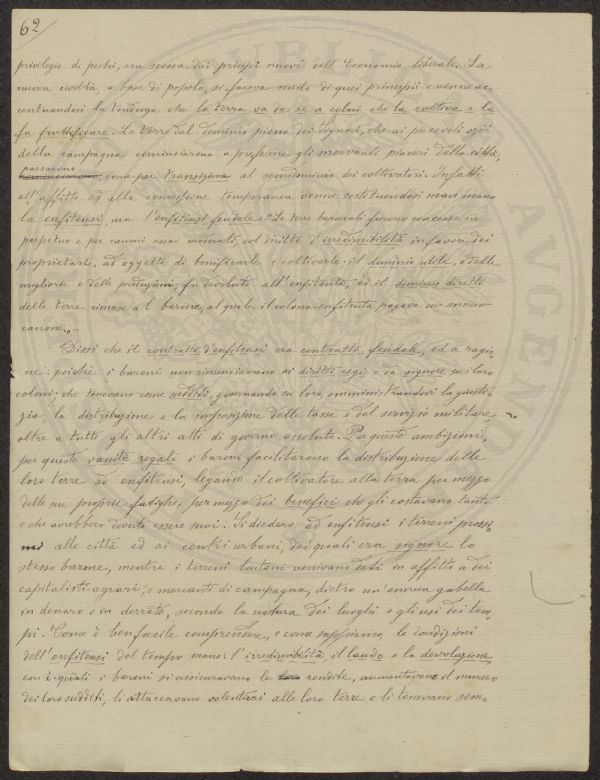 62
privilegio di pochi, era scossa dai principi nuovi dell'Economia liberale. La
nuova civiltà, a base di popolo, si faceva scudo di quei principii e venne ac-
centuandosi la tendenza che la terra va da se a colui che la coltiva e la
fa fruttificare. Le terre dal dominio pieno dei Signori, che ai piacevoli ozii
della campagna cominciarono a preferire gli snervanti piaceri della città,
passarono
come per transizione al semidominio dei coltivatori. Infatti
all'affitto ed alla concessione temporanea venne sostituendosi man mano
la enfiteusi, ma l'enfiteusi feudale. Le terre baronali furono concesse in
perpetuo e per canoni assai moderati, col diritto d'irredimibilità in favore dei
proprietari, ad oggetto di bonificarle e coltivarle; il dominio utile, e delle
migliorie e delle produzioni, fu devoluto all'enfiteuta, ed il dominio diretto
delle terre rimase al barone, al quale il colono enfiteuta pagava un annuo
canone.
Dissi che il contratto d'enfiteusi era contratto feudale, ed a ragio-
ne: poichè i baroni non rinunciavano ai diritti regi e da signore su i loro
coloni; che tenevano come sudditi, governando su loro, amministrandovi la giusti-
zia la distribuzione e la imposizione delle tasse e del servizio militare
oltre a tutti gli altri atti di governo assoluto. Per queste ambizioni,
per queste vanità regali i baroni facilitarono la distribuzione delle
loro terre ai enfiteusi, legando il coltivatore alla terra per mezzo
delle sue proprie fatighe, per mezzo dei benefici che gli costavano tanto
e che avrebbero dovuto essere suoi. Si diedero ad enfiteusi i terreni prossi-
mi alle città ed ai centri urbani, dei quali era signore lo
stesso barone, mentre i terreni lontani venivano dati in affitto a dei
capitalisti agrari, o mercanti di campagna, dietro un'annua gabella
in denaro o in derrate, secondo la natura dei luoghi e gli usi dei tem-
pi. Come è ben facile comprendere, e come sappiamo, le condizioni
dell'enfiteusi del tempo erano: l'irredimibilità, il laudo e la devoluzione,
con i quali i baroni si assicuravano le rendite, aumentavano il numero
dei loro sudditi, li attaccavano volentieri alle loro terre e li tenevano sem-